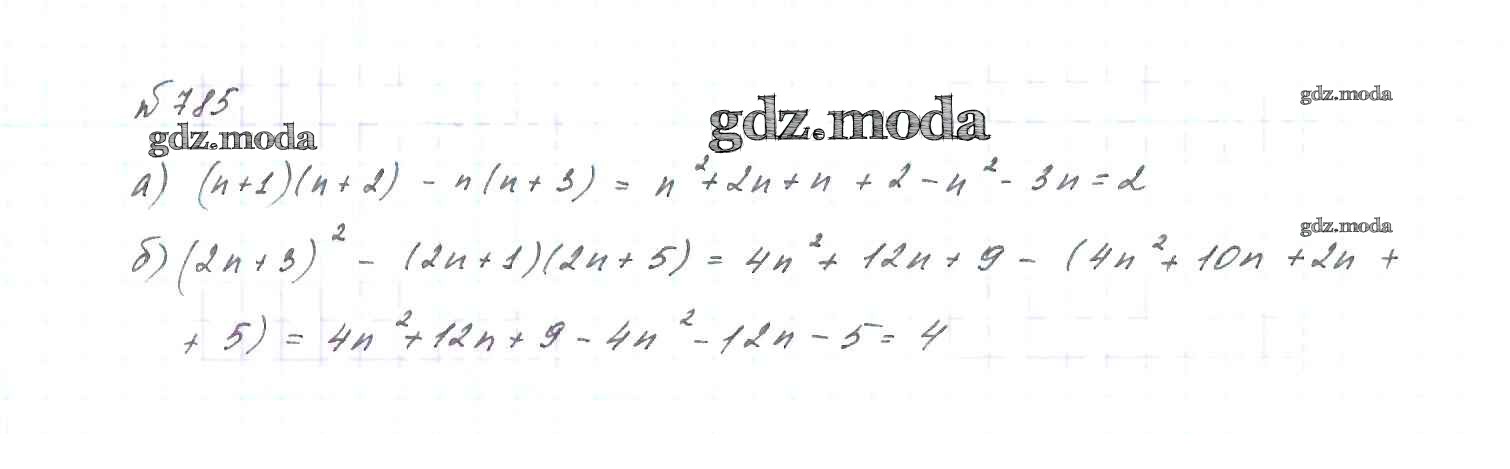 №785
gdz.moda
gdz.moda
gdz.moda
а) (n+1)(n+2) - n(n+3) = n²+2n+n+2-n²-3n=2
gdz.moda
б) (2n+3)² - (2n+1)(2n+5) = 4n²+12n+9-(4n²+10n+2n+
+5) = 4n²+12n+9-4n²-12n-5=4